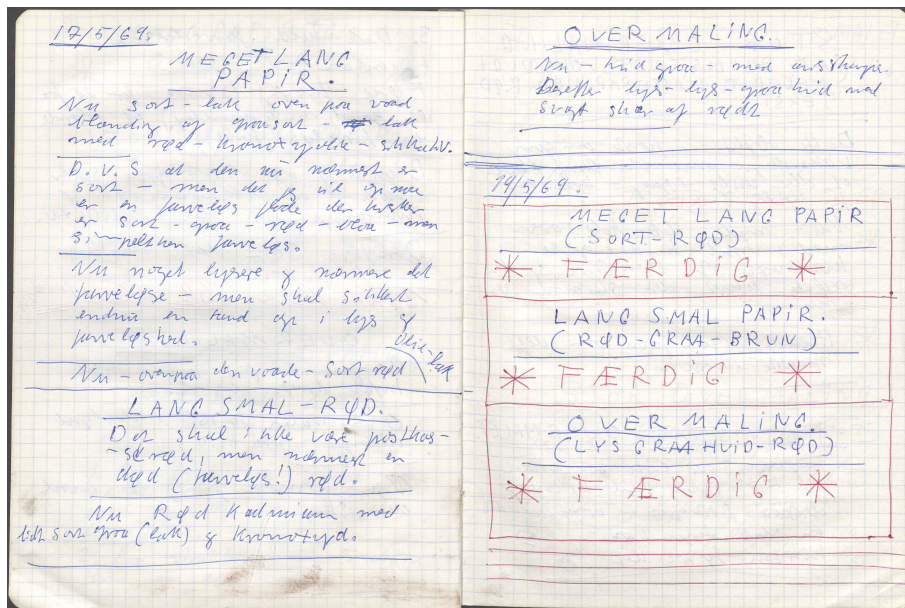 17/5/69.
MEGET LANG
PAPiR.
Nu sort-lak oven paa vaad
blanding af graasort - lak
med rød - - sikkativ.
D.V.S at den nu nærmest er
sort - men det jeg vil
er en farveløs flade der hverken
er sort - graa - rød - blaa - men
simpelthen farveløs.
Nu noget lysere og nærmere det
farveløse - men skal sikkert
endnu en tand op i lys og
farveløshed.
Olie-lak
Nu - ovenpaa den vaade - Sort rød
LANG SMAL-RØD.
Det skal ikke være posthus-
-rød, men nærmest en
død (farveløs!) rød.
Nu Rød Kadmium med
lidt sort graa (lak) og Kronoxyd.
OVERMALiNG.
Nu - hvid graa - med
Derefter lys-lys-graa hvid med
svagt skær af rødt
19/5/69.
MEGET LANG PAPiR
(SORT-RØD)
* FÆRDiG *
LANG SMAL PAPiR.
(RØD-GRAA-BRUN)
* FÆRDiG *
OVERMALiNG.
(LYS GRAAHViD-RØD)
* FÆRDiG *